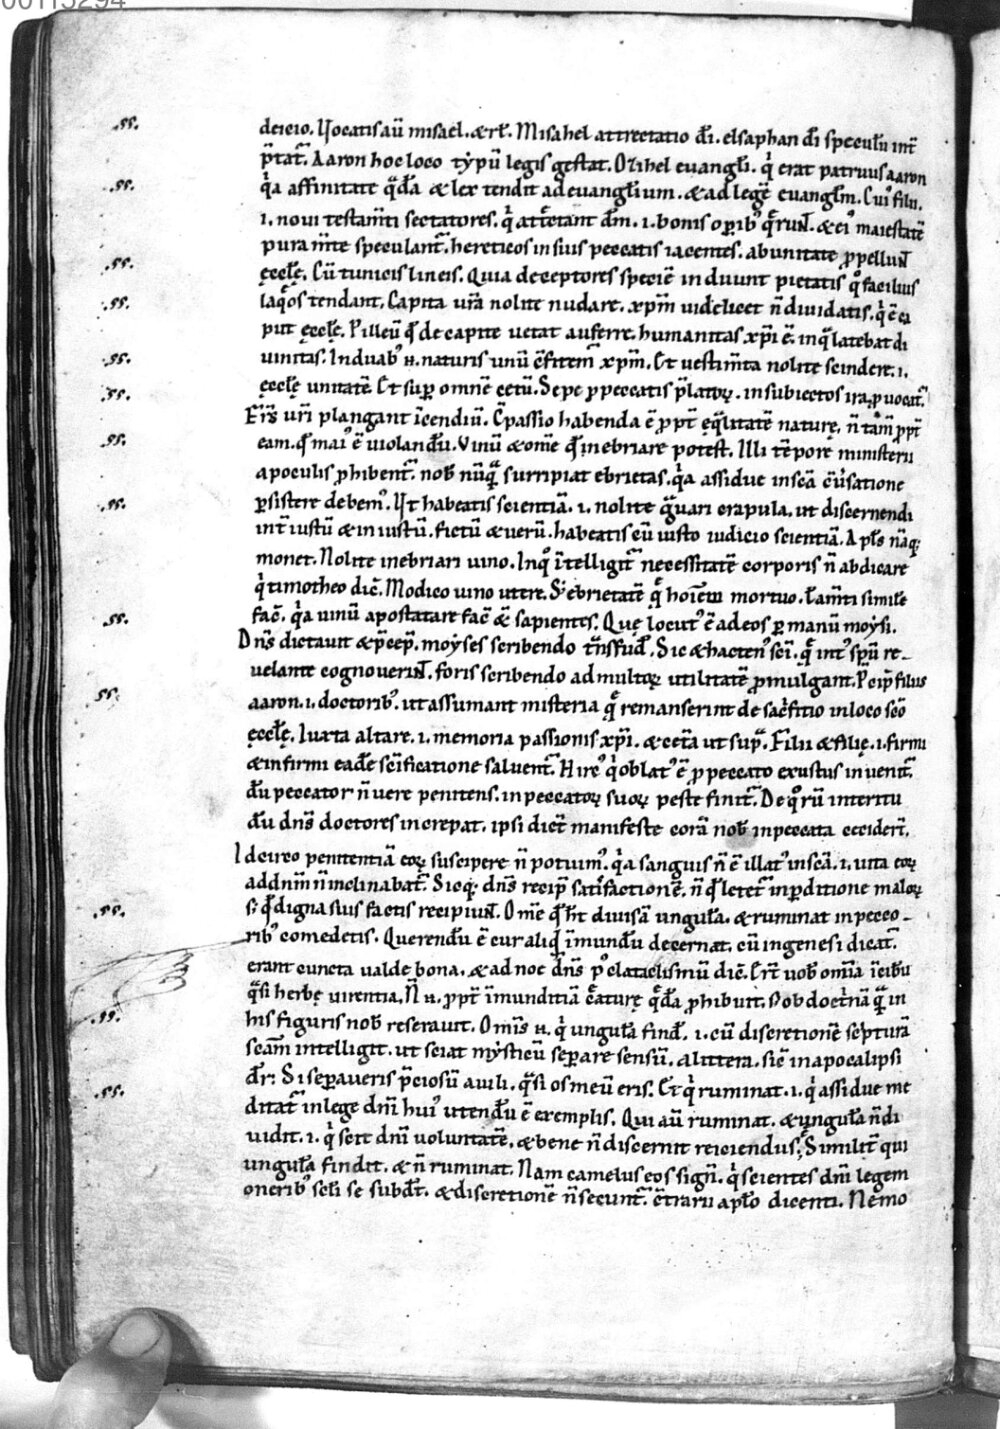 00115294
deicio. Uocatis aū misael. & rł. Misahel attrectatio di. elsaphan di speculū int̄
p̄tat̄. Aaron hoc loco tẏpū legis gestat. Ozihel euangł̄i. q̇ erat patruus aaron
q̇a affinitate q̄dā & lex tendit ad euangł̄ium. & ad legē euangł̄m. Cui᾽ filii.
.ı. noui testam̄ti sectatores. q̇ att̄etant dm̄. ı. bonis op̱ib᾽ q̄run̄. & ei᾽ maiestatē
pura m̄te speculant̄. hereticos in suis peccatis iacentes. ab unitate p̱pellun̄
ęcclę̄. Cū tunicis lineis. Quia deceptores speciē induunt pietatis q̊ facilius
laq̊os tendant. Capita ur̄a nolite nudare. xp̄m uidelicet n̄ diuidatis. q̇ ē ca
put ęcclę̄. Pilleū q̄d de capite uetat auferre. humanitas xp̄i ē. in q̄ latebat di
uinitas. Induab᾽ n. naturis unū c̄fitem̄ xp̄m. Et uestim̄ta nolite scindere. ı.
ęcclę̄ unitatē. Et sup̱ omnē cetū. Sepe p̱ peccatis p̄latoꝝ. in subiectos ira p̱uocat̄.
Fr̄s̄ ur̄i plangant īcendiū. C̄passio habenda ē p̱pt̄ ęq̄litatē naturę. n̄ tam̄ p̱pt̄
eam. q̄d mai᾽ ē uiolandū. Vinū & om̄e q̄d inebriare potest. Illi tēpore ministerii
a poculis p̱hibent̄. nob̄ nūq̄ surripiat ebrietas. q̇a assidue in sc̄a c̄u̇satione
p̱sistere debem᾽. Ut habeatis scientiā. ı. nolite g̊uari crapula. ut discernendi
int̄ iustū & iniustū. fictū & uerū. habeatis cū iusto iudicio scientiā. Apł̄s nāq;
monet. Nolite inebriari uino. In q̊ ītelligit̄ necessitatē corporis n̄ abdicare
q̇ timotheo dic̄. Modico uino utere. S; ebrietatē q̄ hoīem mortuo. ł am̄ti similē
fac̄. q̇a uinū apostatare fac̄ &̄ sapientes. Quę locut᾽ ē ad eos p̱ manū moẏsi.
Dn̄s dictauit & p̄cep̄. moẏses scribendo t̄nsfud̄. Sic & hacten᾽ sc̄i. q̄ int᾽ sp̄u re-
uelante cognouerin̄. foris scribendo ad multoꝝ utilitatē p̱mulgant. P̄cip̄ filiis
aaron. ı. doctorib᾽. ut assumant misteria q̄ remanserint de sac̄fitio in loco sc̄o
ęcclę̄. Iuxta altare. ı. memoria passionis xp̄i. & cet̄a ut sup̄. Filii & filię. ı. firmi
& infirmi eadē sc̄ificatione saluent̄. Hirc᾽ q̇ oblat᾽ ē p̱ peccato exustus inuenit̄.
dū peccator n̄ uere penitens. in peccatoꝝ suoꝝ peste finit̄. De q̊rū interitu
dū dn̄s doctores increpat. ipsi dict̄ manifeste corā nob̄ in peccata cecidert̄.
Idcirco penitentiā eoꝝ suscipere n̄ potuim᾽. q̇a sanguis n̄ ē illat᾽ in sc̄ā. ı. uita eoꝝ
ad dn̄m n̄ inclinabat̄. Sicq; dn̄s recip̄ satisfactionē. n̄ q̄d letet̄ in p̱ditione maloꝝ
s; q̄d digna suis factis recipiun̄. Om̄e q̄d ht̄ diuisā ungulā. & ruminat in pecco-
rib᾽ comedetis. Querendū ē cur aliq̄ īmundū decernat. cū in genesi dicat̄.
erant cuncta ualde bona. & ad noe dn̄s p᾽ cataclismū dic̄. Er̄t uob̄ omīa ī cibū
q̄si herbę uirentia. N̄ n. p̱pt̄ īmunditiā c̄aturę q̄dā p̱hibuit. s; ob doct̄nā q̄ in
his figuris nob̄ reserauit. Omīs n. q̇ ungulā find̄. ı. cū discretionē sc̄pturā
sc̄am intelligit. ut sciat mẏsticū sep̱are sensū. a littera. sic̄ in apocalipsi
dr̄: Si sep̱aueris p̄ciosū a uili. q̄si os meū eris. Et q̇ ruminat. ı. q̇ assidue me
ditat̄ in lege dn̄i hui᾽ utendū ē exemplis. Qui aū ruminat. & ungulā n̄ di
uidit. ı. q̇ scit dn̄i uoluntatē. & bene n̄ discernit reiciendus; Similit̄ qui
ungulā findit. & n̄ ruminat. Nam camelus eos sign̄. q̇ scientes dn̄i legem
onerib᾽ scł̄i se subdt̄. & discretionē n̄ secunt̄. c̄trarii apł̄o dicenti. Nemo